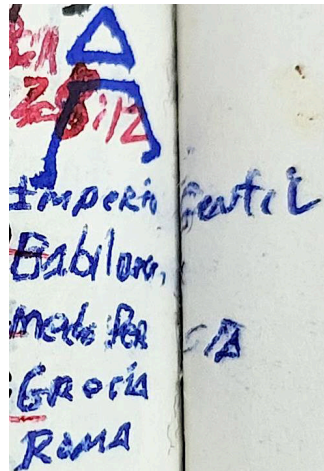 28:12
Imperio Gentil
Babilonia
Medo PerSIA
GRecia
RomA